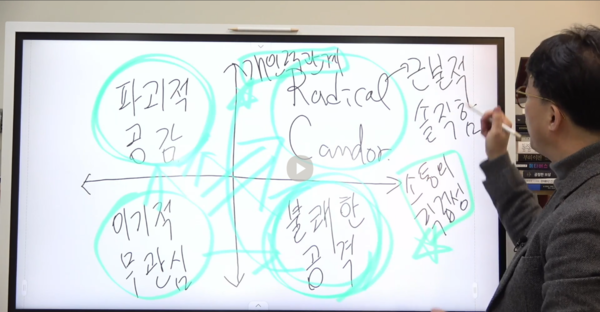 개인적관계
파괴적
공감
Radical
Candor
근본적
솔직함
이기적
무관심
불쾌한
공격
소통의
직접성